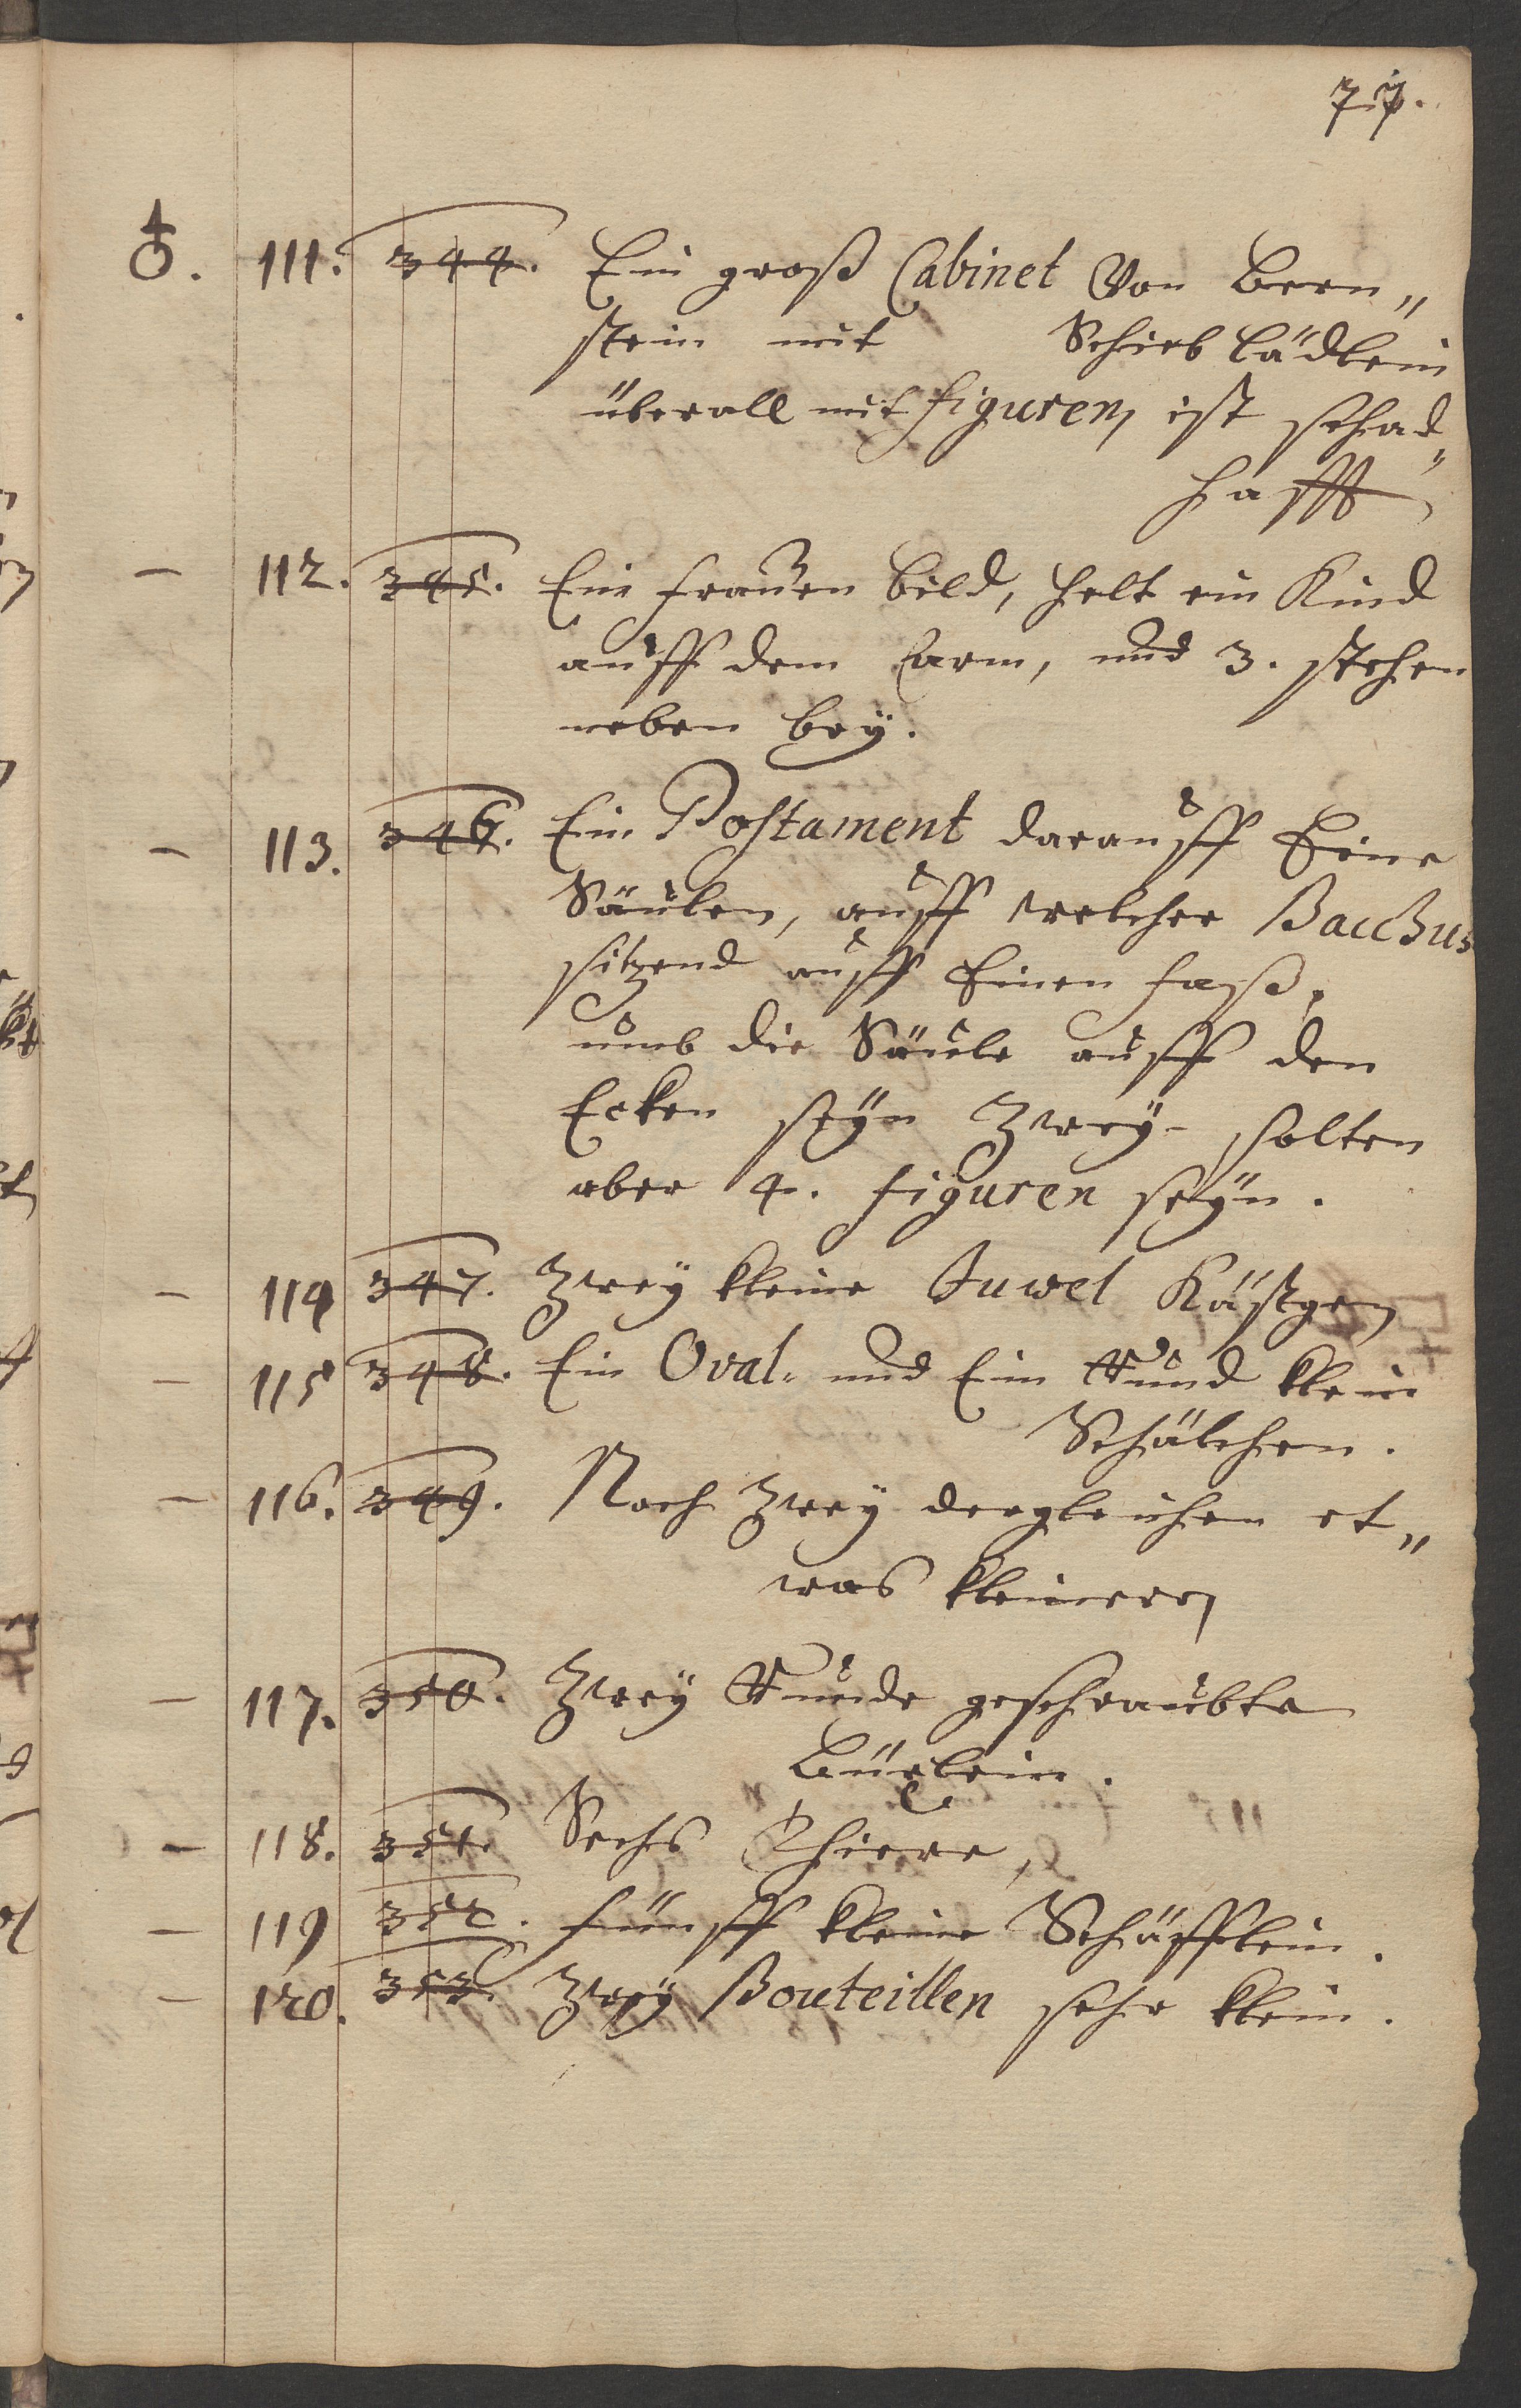 77.
♁. 111. 344. Ein groß Cabinet Von Bern„
stein mit Schieb Lädlein
überall mit figuren, ist schad„
hafft
– 112. 345. Ein frauen bild, helt ein Kind
auff dem Earm, und 3. stehen
neben bey.
– 113. 346. Ein Postament darauff Eine
Säulen, auff welcher Bacchus
sitzend auff Einen faß,
umb die Säule auff den
Ecken seyn Zwey- solten
aber 4. figuren seyn.
– 114 347. Zwey kleine Juwel Kästgen
– 115 348. Ein Oval- und Ein Rund klein
Schälchen.
– 116. 349. Noch Zwey dergleichen et„
was kleinere
– 117. 350. Zwey Runde geschraubte
Büxlein.
– 118. 351. Sechs Thiere,
– 119 352. fünff kleine Schäfflein.
– 120. 353. Zwey Bouteillen sehr klein.